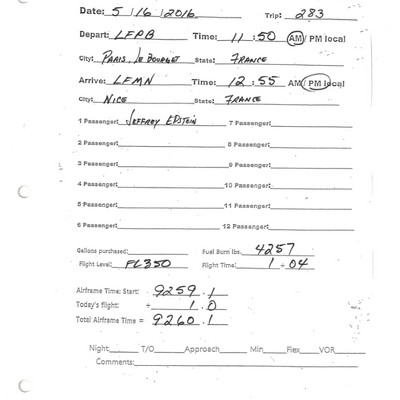 Date: 5 16 2016 Trip: 283
Depart: LFPB Time: 11:50 AM/ PM local
City: PARIS, Le BOURGET State: FRANCE
Arrive: LFMN Time: 12:55 AM/ PM local
City: NICE State: FRANCE
1 Passenger: JEFFREY EPSTEIN 7 Passenger:
2 Passenger: 8 Passenger:
3 Passenger: 9 Passenger:
4 Passenger: 10 Passenger:
5 Passenger: 11 Passenger:
6 Passenger: 12 Passenger:
Gallons purchased: Fuel Burn lbs. 4257
Flight Level: FL350 Flight Time: 1 + 04
Airframe Time: Start: 9259.1
Today's flight: + 1.0
Total Airframe Time = 9260.1
Night: T/O Approach Min Flex VOR
Comments: